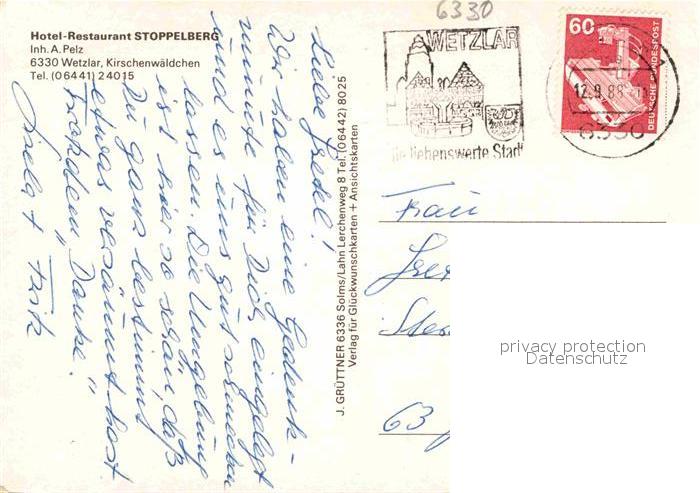 Hotel-Restaurant STOPPELBERG
Inh. A. Pelz
6330 Wetzlar, Kirschenwäldchen
Tel. (06441) 24015
Liebe Gredel!
Wir haben eine Gedenk-
minute für Dich eingelegt
und es uns gut schmecken
lassen. Die Umgebung
ist hier so schön, daß
Du ganz bestimmt
etwas versäumt hast.
Trotzdem "Danke".
+ Fritz
J. GRÜTTNER 6336 Solms/Lahn Lerchenweg 8 Tel. (06442) 8025
Verlag für Glückwunschkarten + Ansichtskarten
6330
WETZLAR
Die liebenswerte Stadt
60
DEUTSCHE BUNDESPOST
12.9.88
6330
Frau
63
privacy protection
Datenschutz